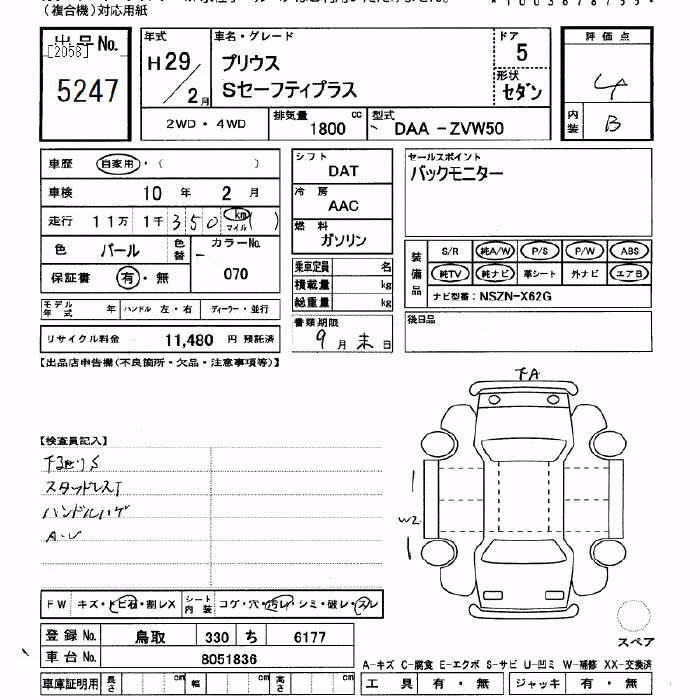 (複合機)対応用紙
出品No.
[2058]
5247
年式
H29/2月
車名・グレード
プリウス
Sセーフティプラス
ドア
5
形状
セダン
評価点
4
内装
B
2WD・4WD
排気量
1800 cc
型式
DAA-ZVW50
車歴 自家用・( )
車検 10年 2月
走行 11万1千350 (km マイル)
色 パール 色替 - カラーNo. 070
保証書 有・無
モデル年式 年 ハンドル 左・右 ディーラー・並行
リサイクル料金 11,480 円 預託済
シフト
DAT
冷房
AAC
燃料
ガソリン
乗車定員 名
積載量 kg
総重量 kg
書類期限
9月末日
セールスポイント
バックモニター
装備品
S/R 純A/W P/S P/W ABS
純TV 純ナビ 革シート 外ナビ エアB
ナビ型番:NSZN-X62G
後日品
【出品店申告欄(不良箇所・欠品・注意事項等)】
【検査員記入】
下廻りS
スタッドレスT
ハンドルハゲ
A・U
FW キズ・トビ石・割レX シート内装 コゲ・穴・汚レ・シミ・破レ・スレ
登録No. 鳥取 330 ち 6177
車台No. 8051836
車庫証明用 長さ cm 幅 cm 高さ cm
下A
W2
スペア
A-キズ C-腐食 E-エクボ S-サビ U-凹ミ W-補修 XX-交換済
工具 有・無 ジャッキ 有・無